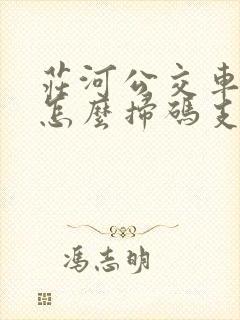 莊河公交車
怎麼掃碼支
馮志明